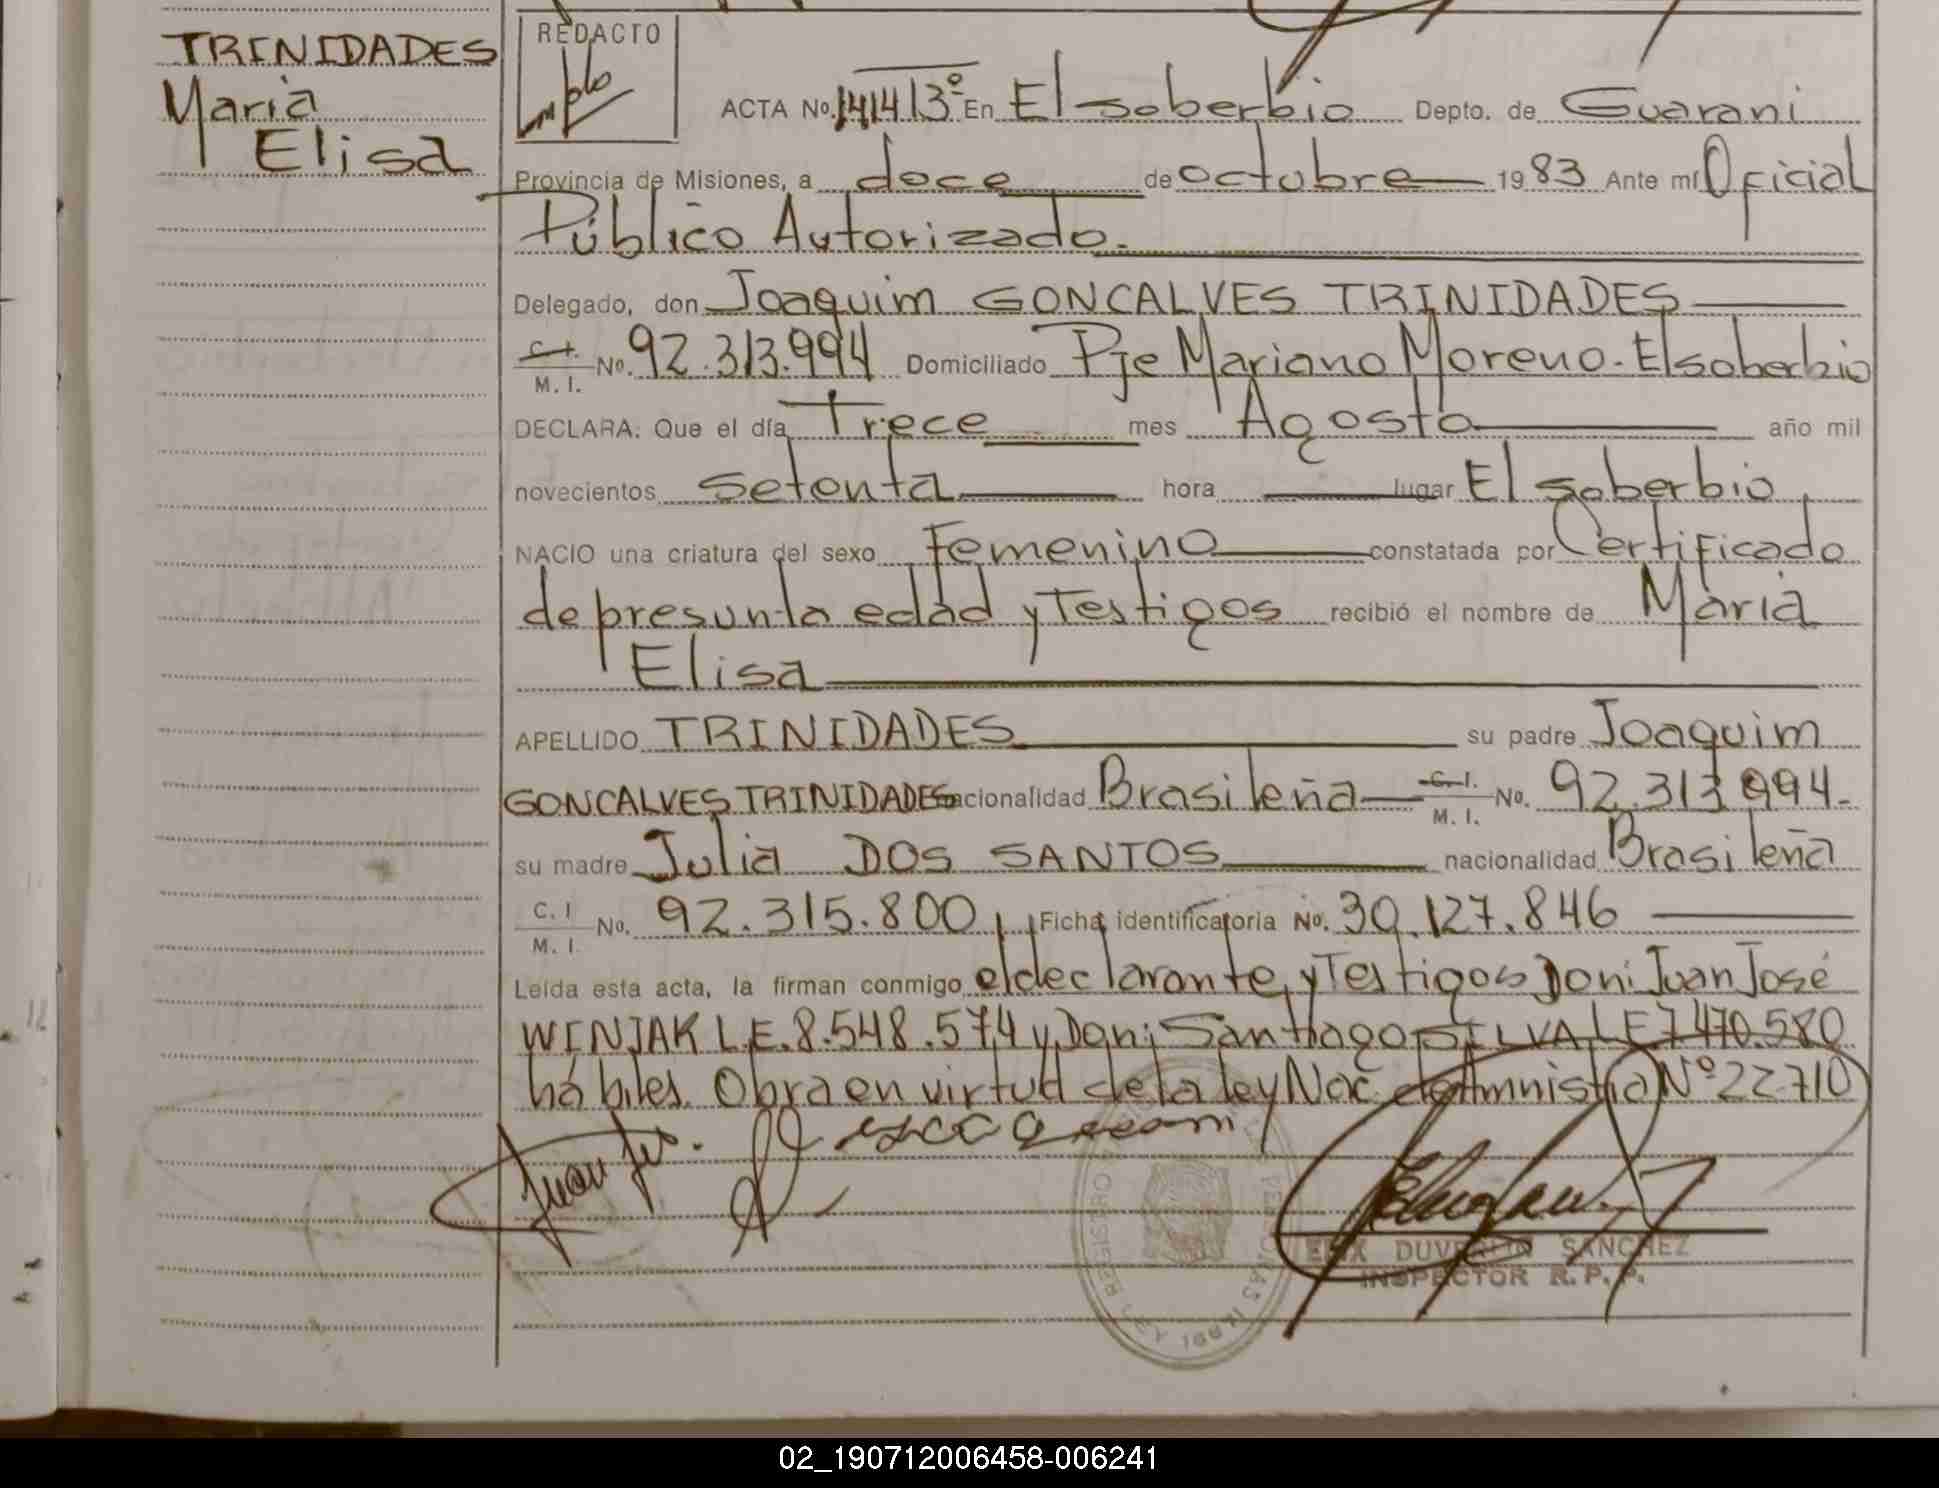 TRINIDADES
Maria
Elisa
REDACTO
ACTA No. 1414 13º En El soberbio Depto. de Guarani
Provincia de Misiones, a doce de octubre 1983 Ante mí Oficial
Público Autorizado.
Delegado, don Joaquim GONCALVES TRINIDADES
C. I. M. I. No. 92.313.994 Domiciliado Pje Mariano Moreno - El soberbio
DECLARA: Que el día Trece mes Agosto año mil
novecientos setenta hora lugar El soberbio,
NACIO una criatura del sexo Femenino constatada por Certificado
de presunta edad y Testigos recibió el nombre de Maria
Elisa
APELLIDO TRINIDADES su padre Joaquim
GONCALVES TRINIDADES nacionalidad Brasileña C. I. M. I. No. 92.313.994-
su madre Julia DOS SANTOS nacionalidad Brasileña
C. I M. I. No. 92.315.800 Ficha identificatoria No. 30.127.846
Leída esta acta, la firman conmigo el declarante y Testigos Don: Juan José
WINJAK L.E. 8.548.574 y Don: Santiago SILVA L.E 7.470.580
hábiles. Obra en virtud de la ley Nac. de Amnistia Nº 22.710
DUVERLIN SANCHEZ
INSPECTOR R. P. P.
02_190712006458-006241